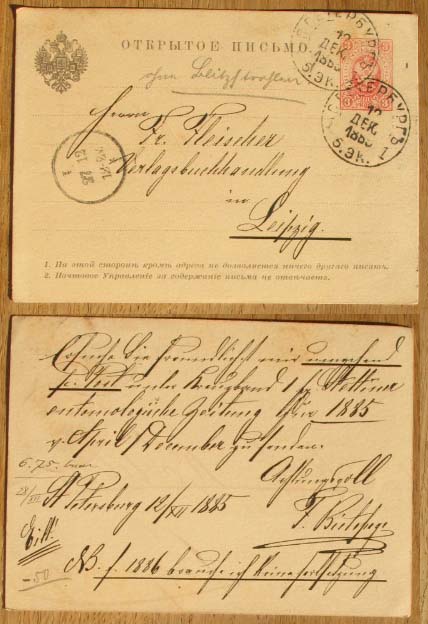 ОТКРЫТОЕ ПИСЬМО.
С.ПЕТЕРБУРГЪ
12
ДЕК.
1885
5.ЭК.
С.ПЕТЕРБУРГЪ
12
ДЕК.
1885
5.ЭК. 1
ohne Blitzstrahlen
Herrn
Fr. Fleischer
Verlagsbuchhandlung
in
Leipzig.
1. На этой сторонѣ кромѣ адреса не дозволяется ничего другаго писать.
2. Почтовое Управленіе за содержаніе письма не отвѣчаетъ.
Ersuche Sie freundlichst mir umgehend
fr. Post unter Kreuzband 1 Stettiner
entomologische Zeitung für 1885
v. April/December zu senden.
6.75.
Achtungsvoll
28/XII
St Petersburg 12/XII 1885
Eilt!
-50
NB. f. 1886 brauche ich keine Fortsetzung